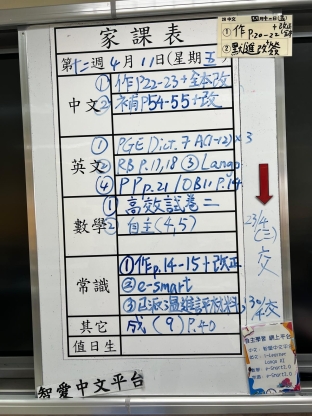 家課表
第十二週 4月11日(星期五)
中文
①作P22-23+全本改
②補P54-55+改
英文
① PGE Dict. 7A(1-12)×3
② RB P.17,18 ③ Lango
④ PP p.21 / OB11 P.14
數學
① 高效試卷二
② 自主(4,5)
常識
①作p.14-15+改正
②e-smart
23/4
(三)
交
30/4交
其它
成(9)P.40
值日生
智愛中文平台
中文
①作P.20-22
②默進改簽
自主學習 網上平台